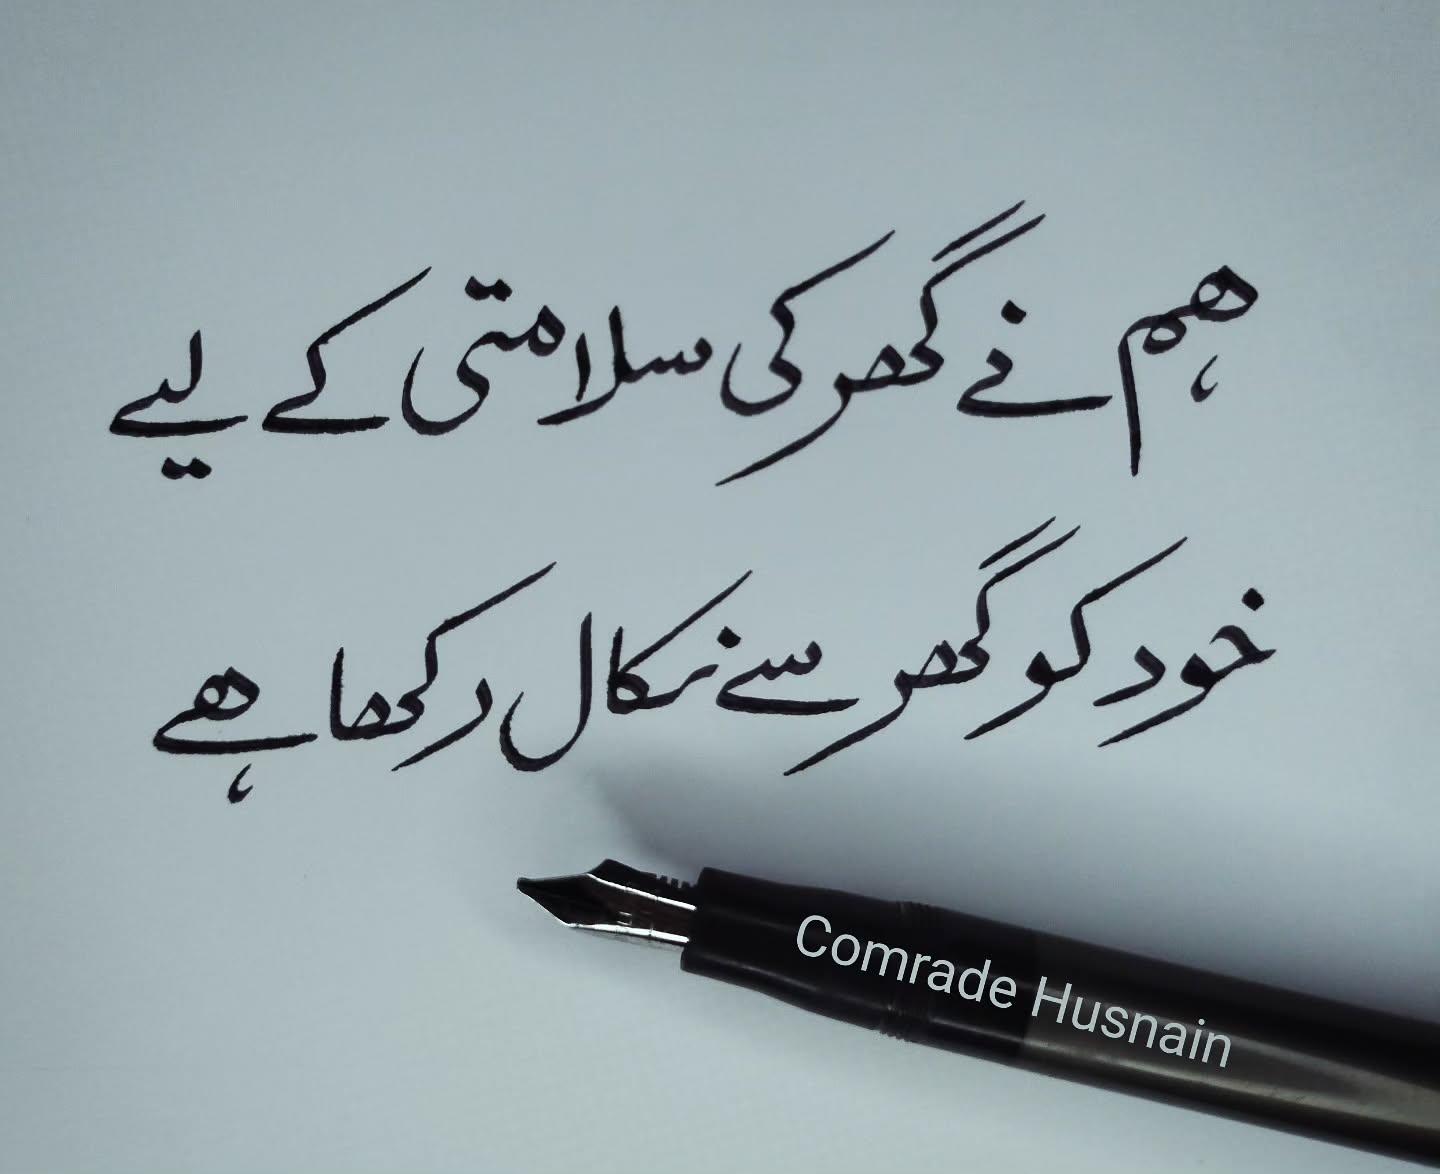 ہم نے گھر کی سلامتی کے لیے
خود کو گھر سے نکال رکھا ہے
Comrade Husnain